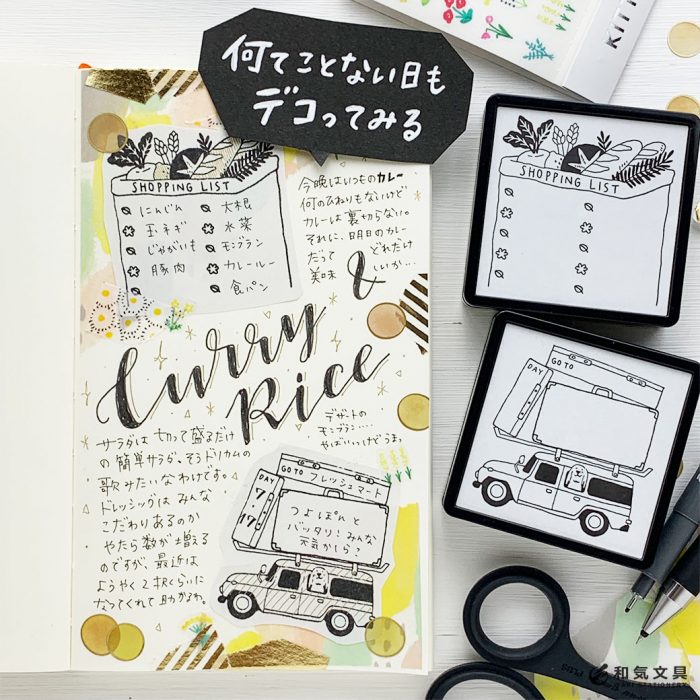 何てことない日も
デコってみる
KITT
SHOPPING LIST
にんじん
大根
玉ネギ
水菜
じゃがいも
モンブラン
豚肉
カレールー
食パン
今晩はいつものカレー
何のひねりもないけど
カレーは裏切らない。
それに、明日のカレー
だって どれだけ
美味 しいか…
&
Curry
Rice
サラダは切って盛るだけ
の簡単サラダ、そうドリカムの
歌みたいなわけです。
ドレッシングはみんな
こだわりあるのか
やたら数が増える
のですが、最近は
ようやく2択くらいに
なってくれて助かるわ。
デザートの
モンブラン…
やばいいっけどうま。
GO TO フレッシュマート
DAY
7/17
つよぽんと
バッタリ!みんな
元気かしら?
SHOPPING LIST
GO TO
DAY
PLUS
和気文具
WAKI STATIONERY